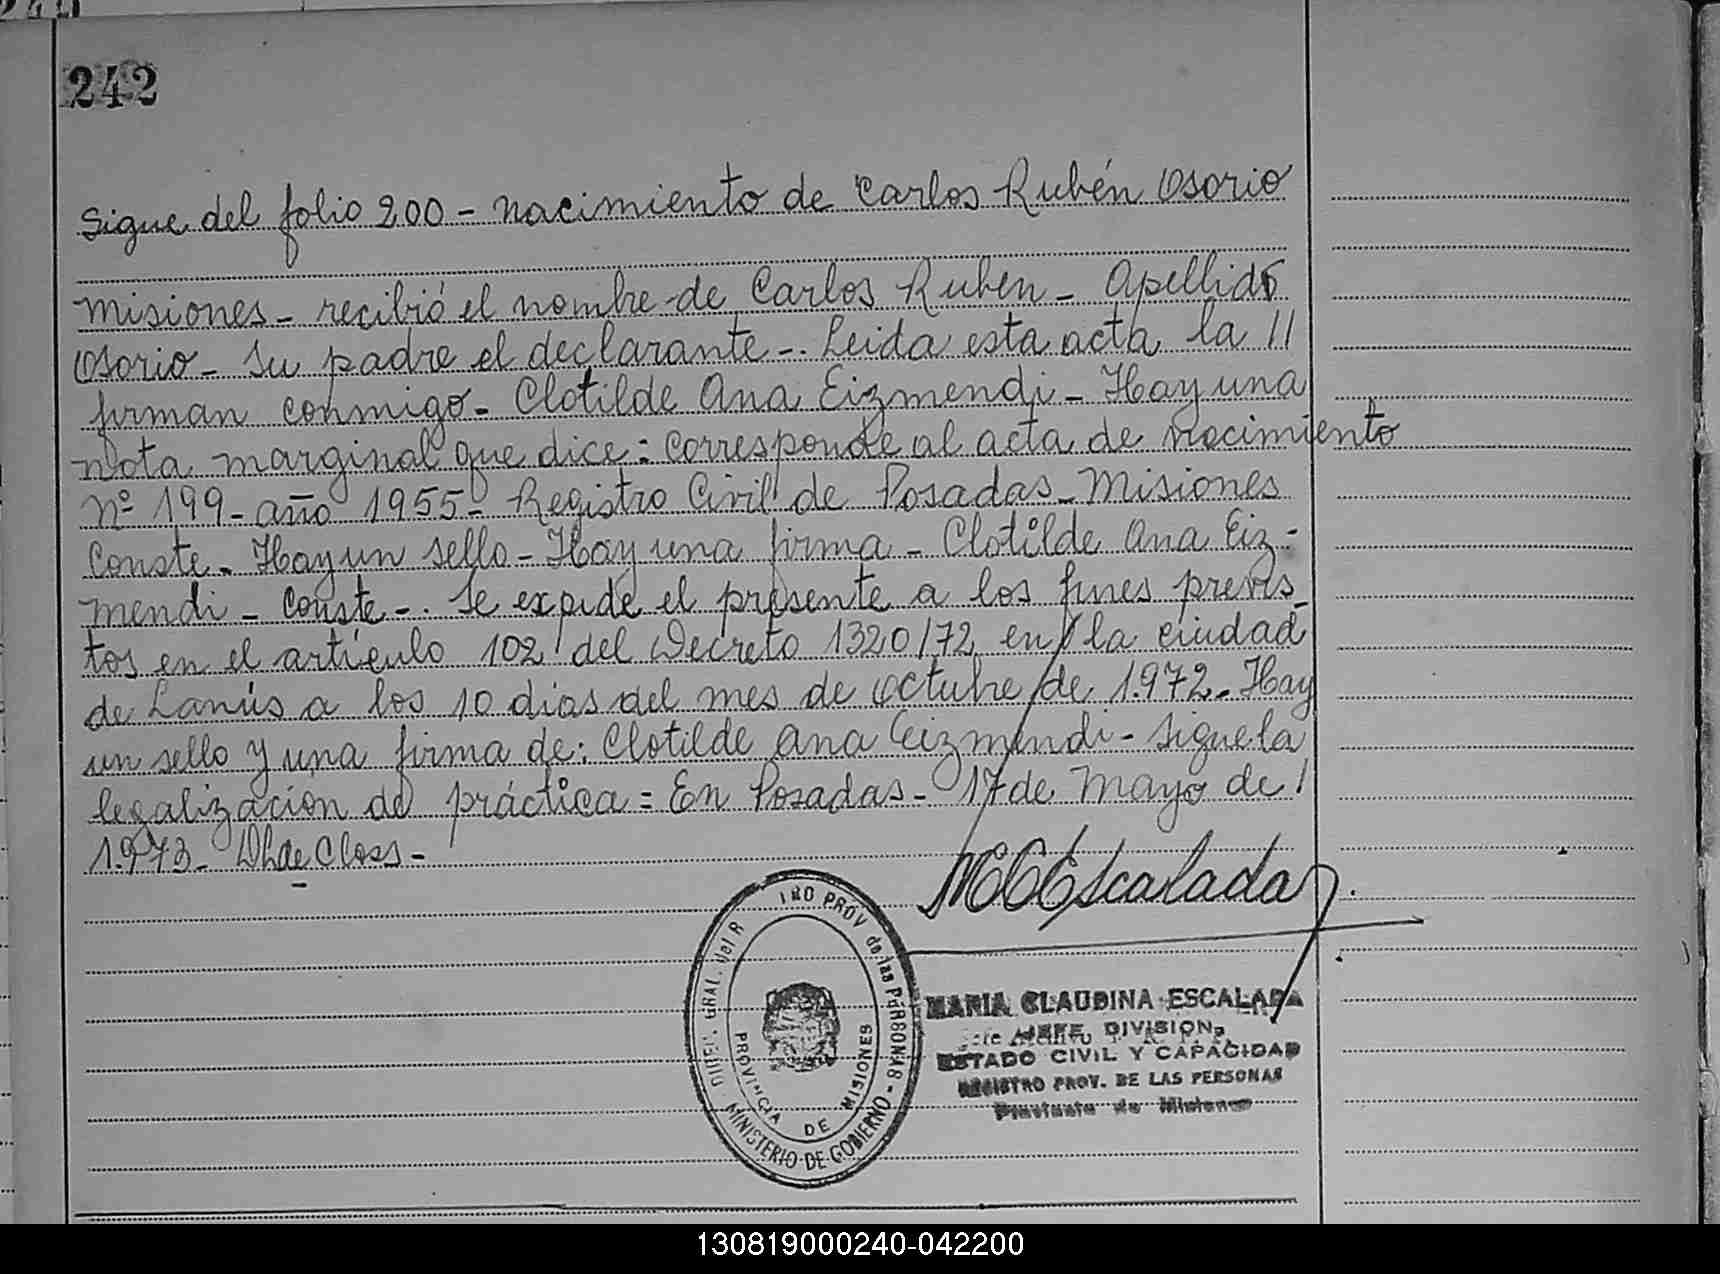 242
Sigue del folio 200 - nacimiento de Carlos Rubén Osorio
Misiones - recibió el nombre de Carlos Ruben - Apellido
Osorio - Su padre el declarante -. Leida esta acta la //
firman conmigo - Clotilde Ana Eizmendi - Hay una
nota marginal que dice: Corresponde al acta de nacimiento
Nº 199 - año 1955 - Registro Civil de Posadas - Misiones
Conste - Hay un sello - Hay una firma - Clotilde Ana Eiz-
mendi - Conste -. Se expide el presente a los fines previs-
tos en el artículo 102 del Decreto 1320/72 en la ciudad
de Lanús a los 10 dias del mes de octubre de 1.972 - Hay
un sello y una firma de: Clotilde Ana Eizmendi - Sigue la
legalización de práctica = En Posadas - 17 de Mayo de /
1.973 - de Closs -
MCEscalada
DIREC. GRAL. del R TRO PROV de las PERSONAS - MINISTERIO DE GOBIERNO
PROVINCIA DE MISIONES
MARIA CLAUDINA ESCALADA
JEFE DIVISION
ESTADO CIVIL Y CAPACIDAD
REGISTRO PROV. DE LAS PERSONAS
Provincia de Misiones
130819000240-042200